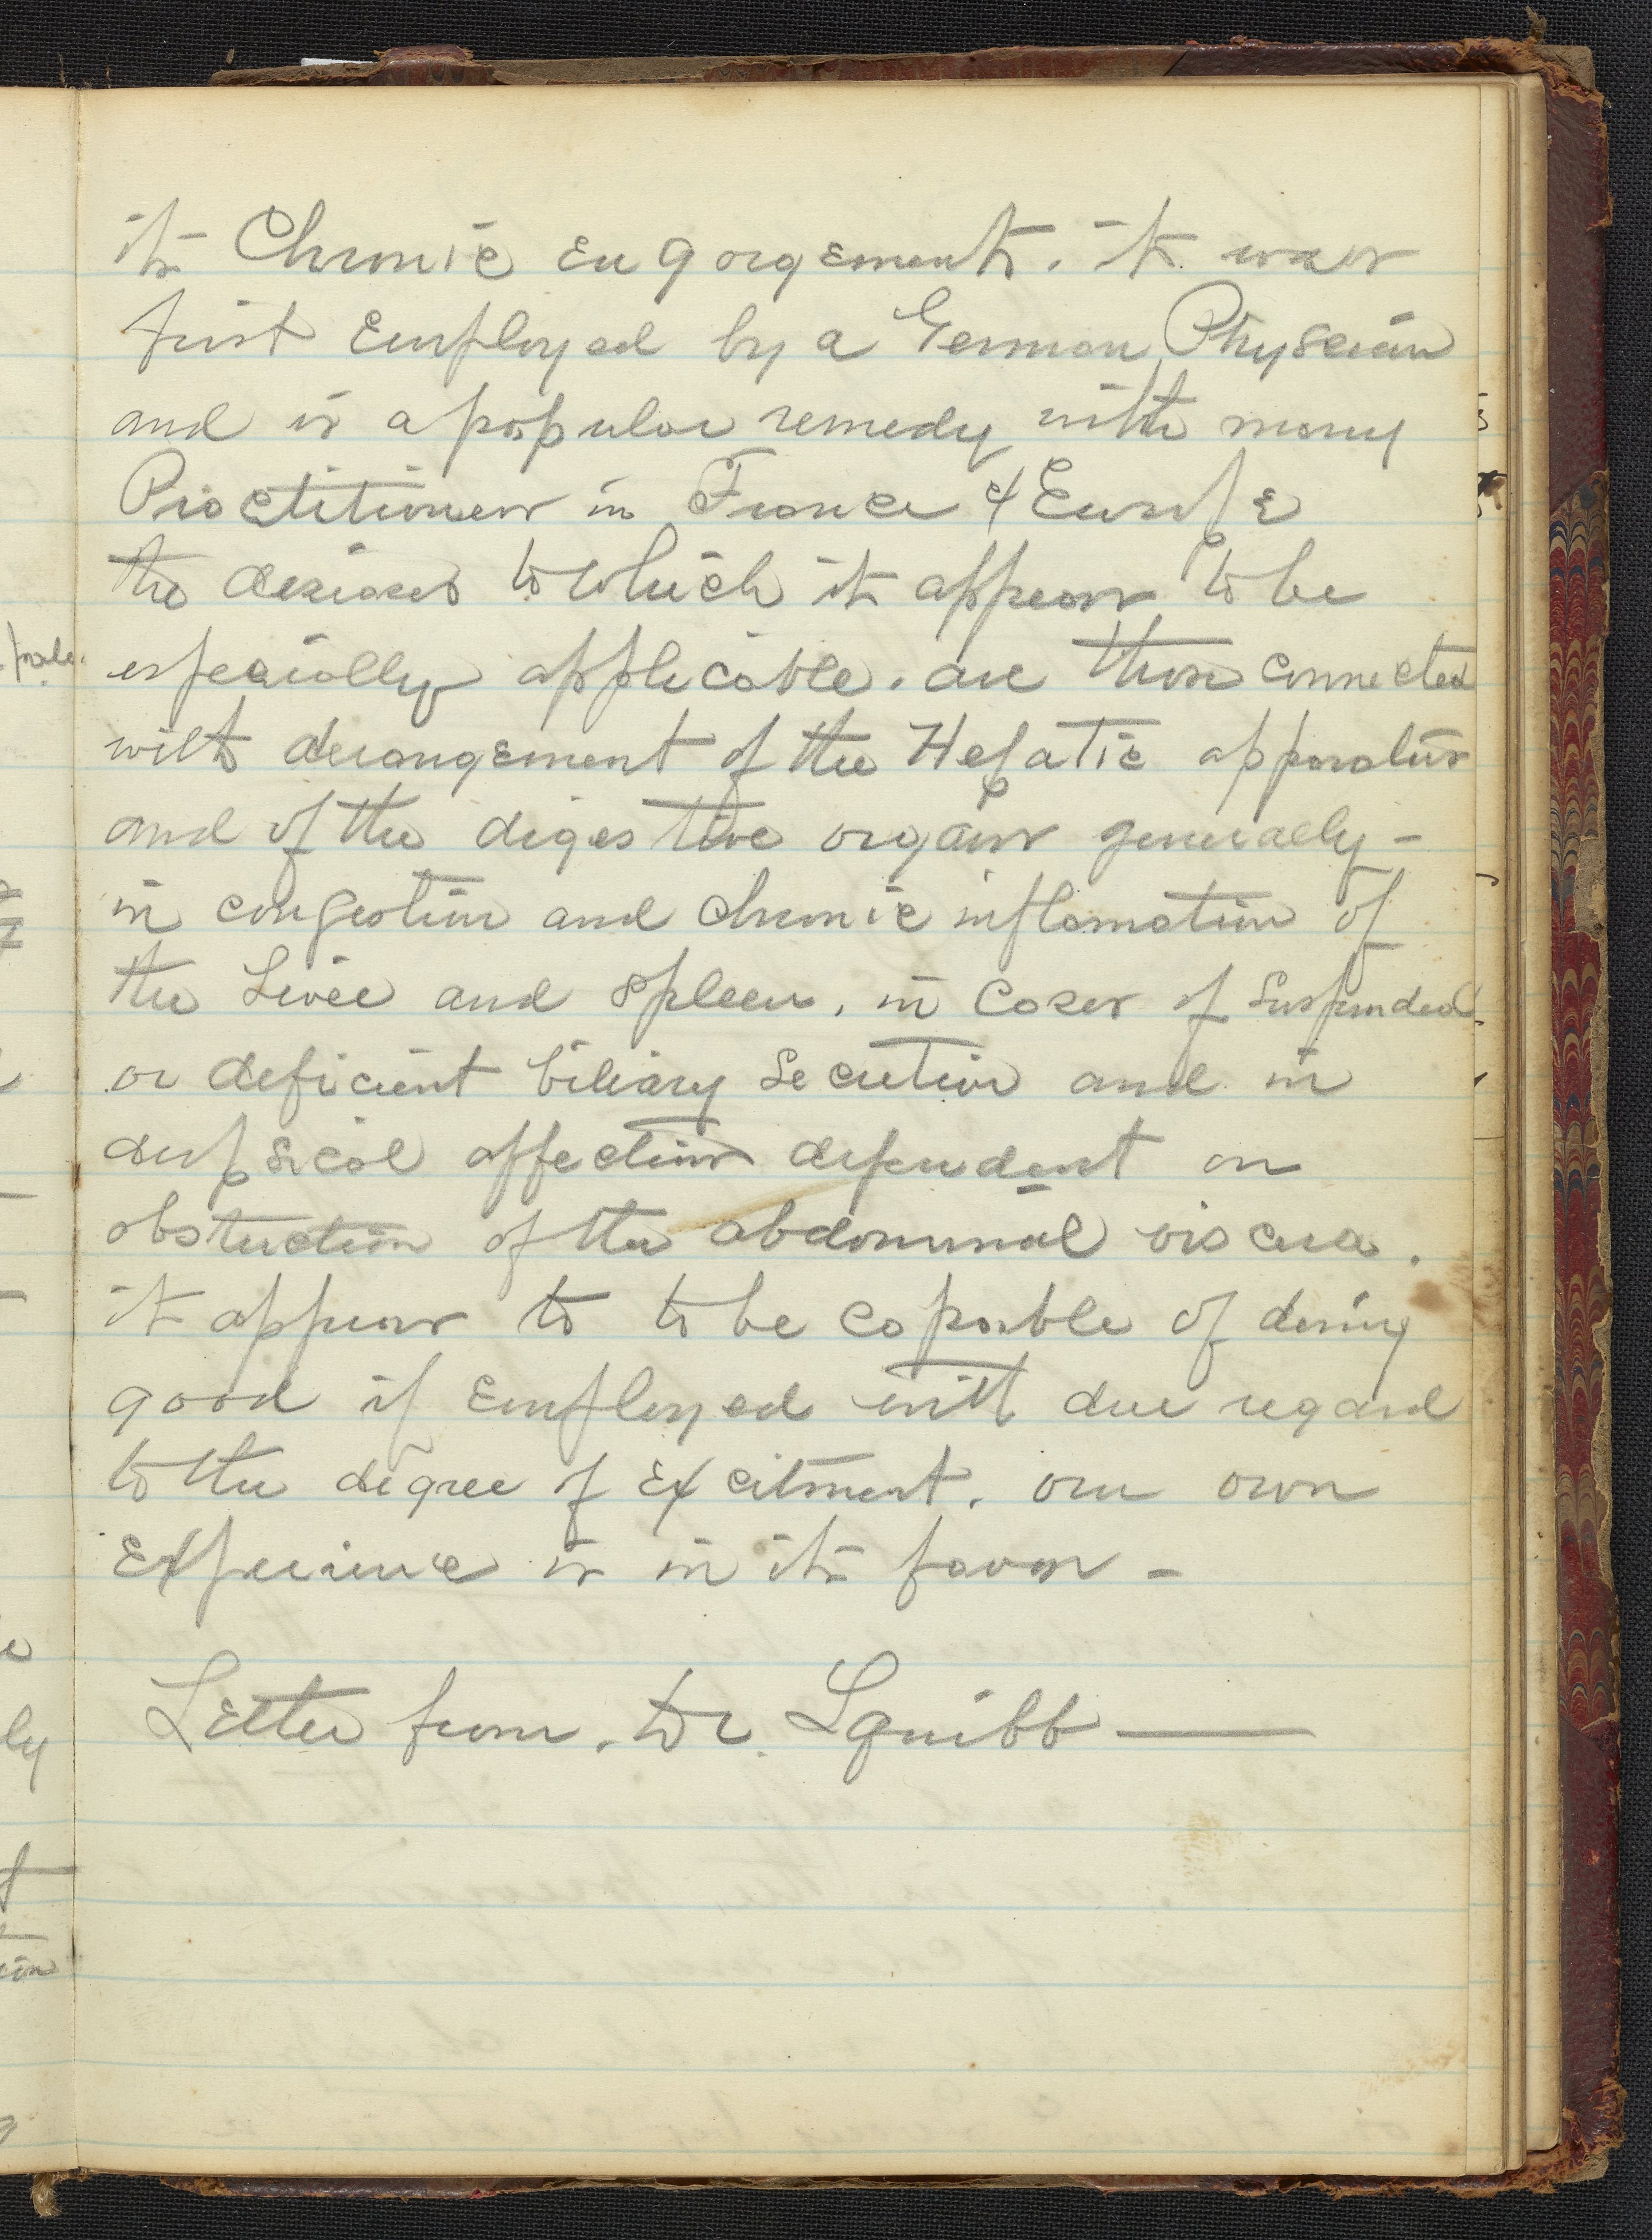 its Chronic engorgements. it was
first Employed by a German Physcian
and is a popular remedy with many
Practitioners in France & Europe
the diseases to which it appears to be
especially applicable. are those connected
with derangement of the Hepatic apparatus
and of the digestive organs generally -
in congestion and chronic inflamation of
the Liver and spleen, in Cases of Suspended
or deficient biliary Secretion and in
dropsical affections dependent on
obstruction of the abdominal viscera.
it appears to to be capable of doing
good if Employed with due regard
to the degree of Excitment. our own
Experience is in its favor -
Letter from. Dr. Squibb —